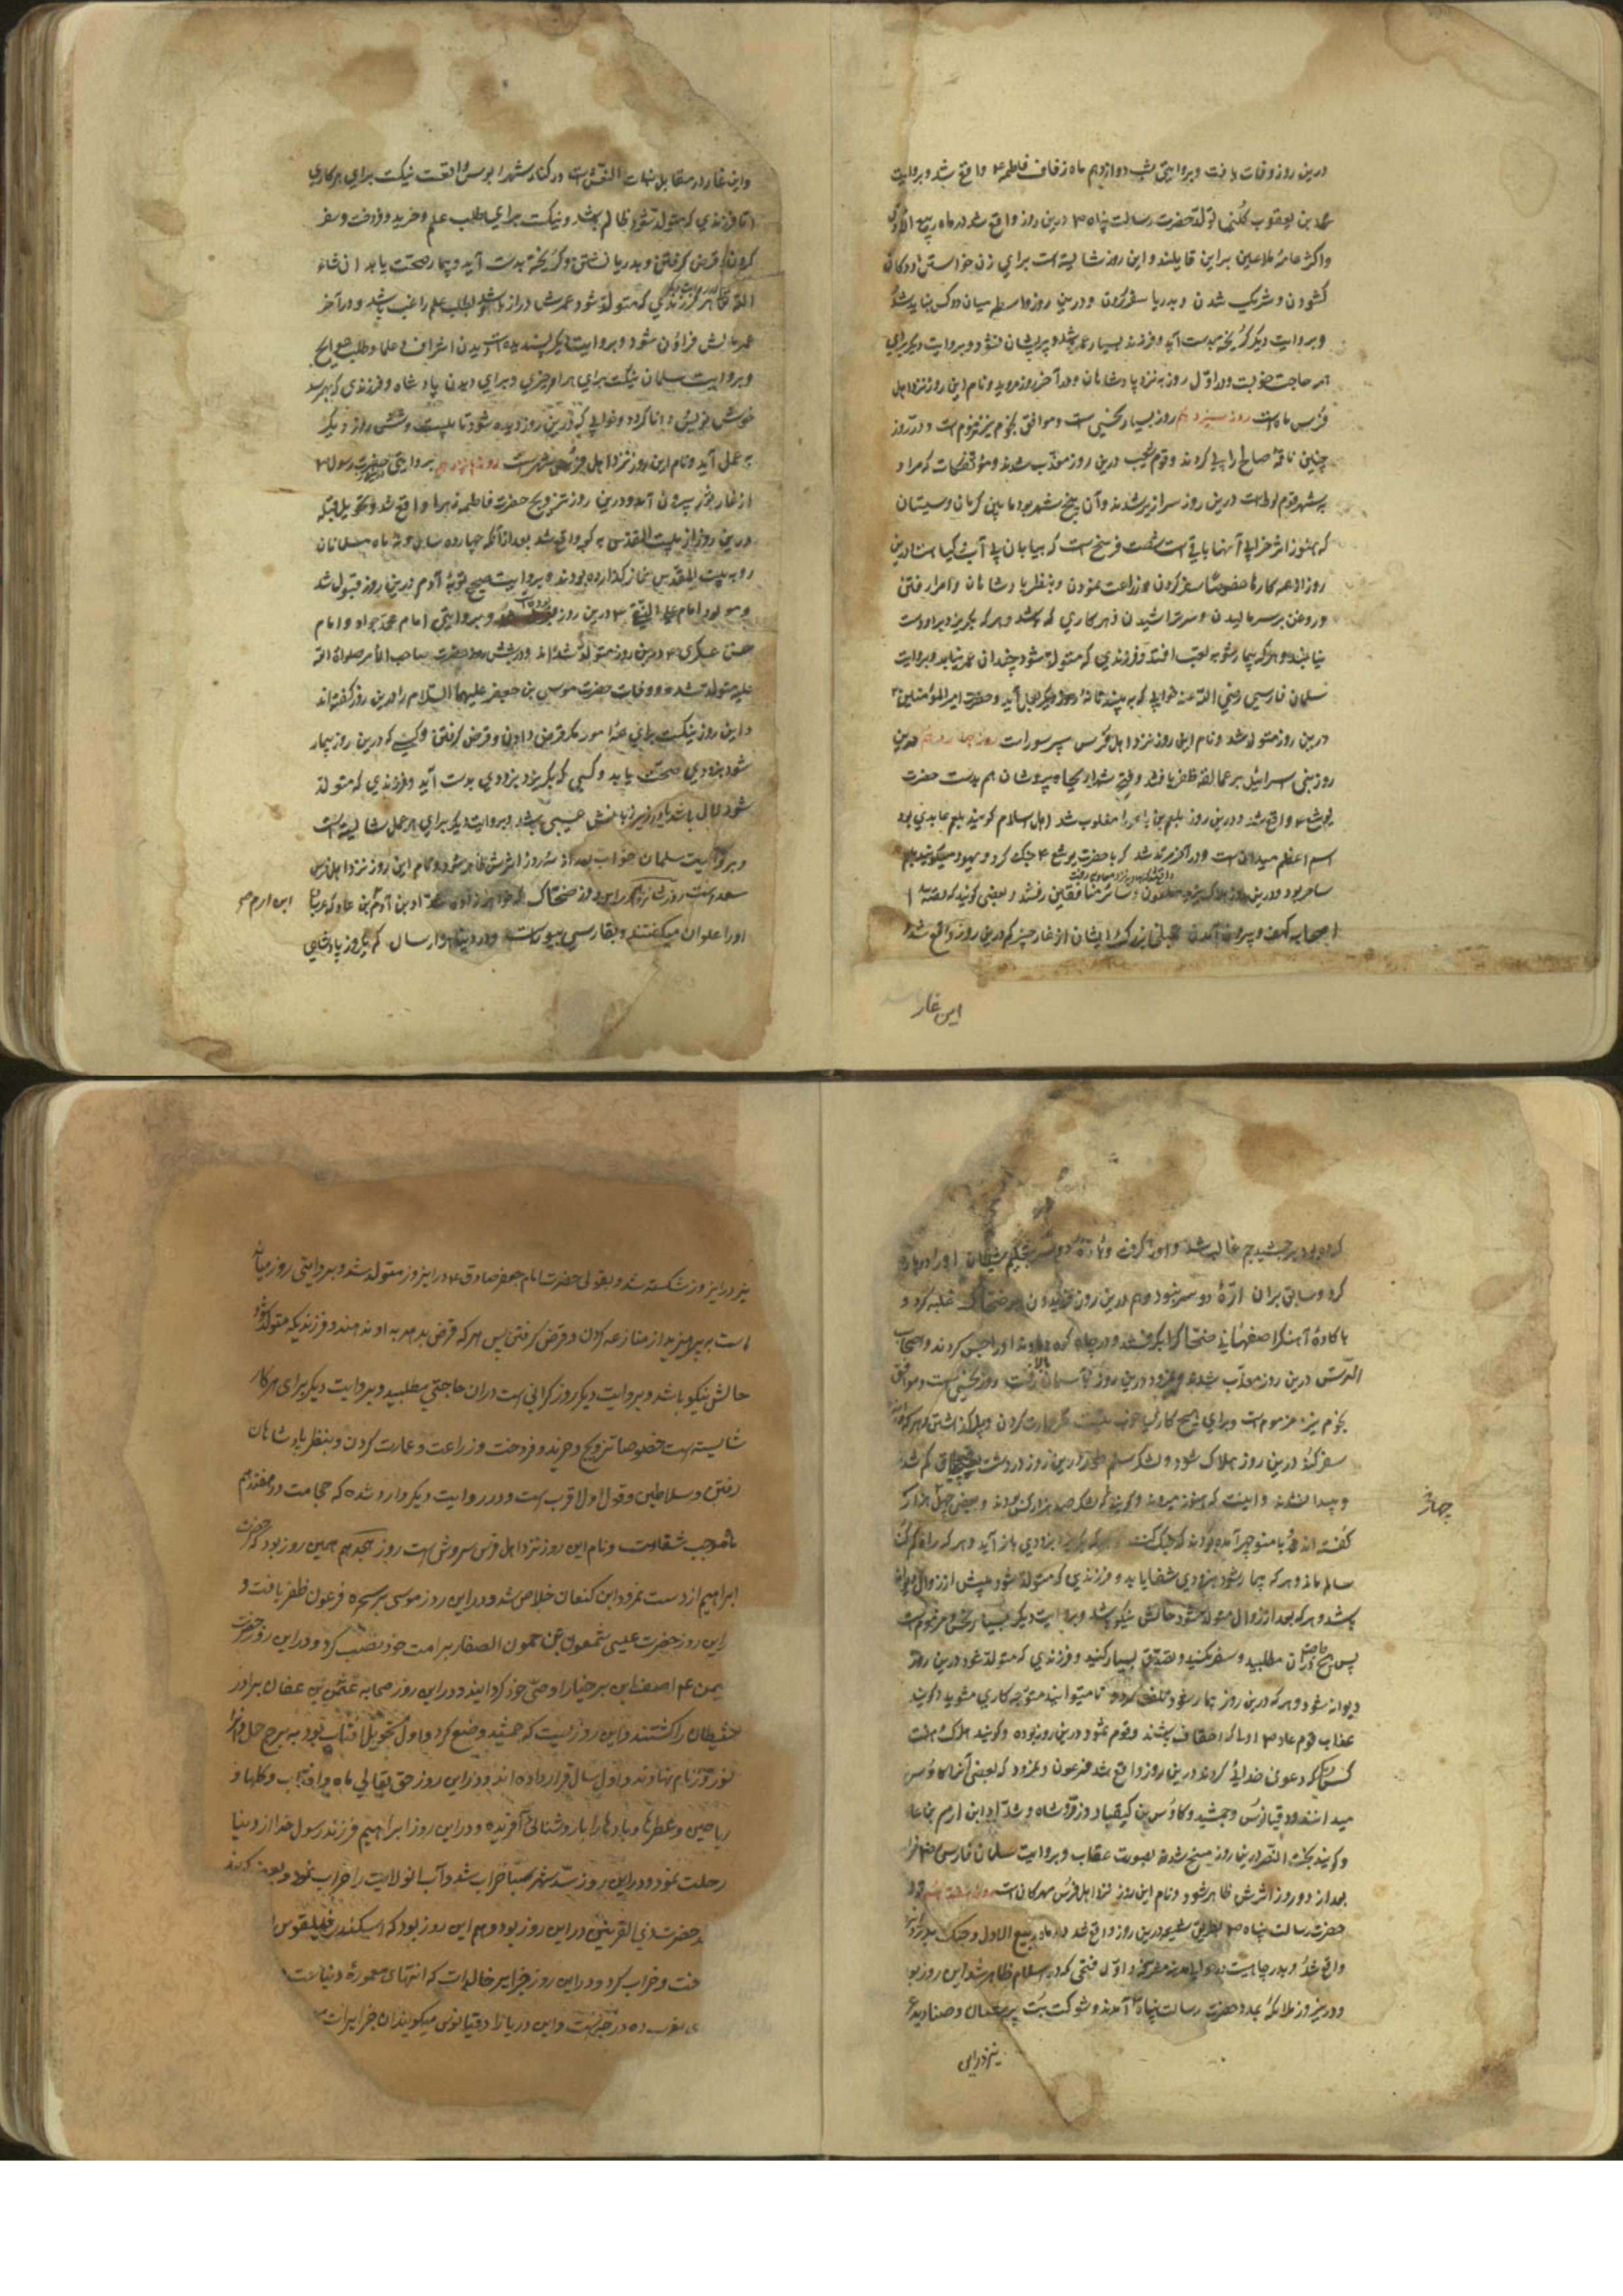 درین روز وفات یافت و بروایتی شب دوازدهم ماه زفاف فاطمه ع واقع شد و بروایت
محمد بن یعقوب کلینی تولد حضرت رسالت پناه ص درین روز واقع شد در ماه ربیع الاول
و اکثر عامهٔ ملاعین براین قایلند و این روز شایسته است برای زن خواستن و دوکان
کشودن و شریک شدن و بدریا سفر کردن و درین روز واسطه میان دو کس نباید شد
و بروایت دیکر کریخته بدست آید و فرزند بسیار عمر باشد و پریشان نشود و بروایت دیکر برای
همه حاجت خوبست و در اول روز به نزد پادشاهان و در آخر روز مروید و نام این روز نزد اهل
فرس ماه است روز سیزدهم روز بسیار نحسی است و موافق نجوم نیز مذموم است و در روز
چنین ناقهٔ صالح را پی کردند و قوم شعیب درین روز معذب شدند و مؤتفکات که مراد
شهر قوم لوط است درین روز سرازیر شدند و آن پنج شهر بود مابین کرمان و سیستان
که هنوز اثر خرابی آنها باقی است شصت فرسخ است که بیابان بی آب و کیاه است درین
روز از همه کارها خصوصا سفر کردن و زراعت نمودن و بنظر پادشاهان و امرا رفتن
و روغن بر سر مالیدن و سر تراشیدن و هر کاری که باشد و هر که بکریزد بر او دست
نیابند و هرکه بیمار شود به تعب افتد و فرزندی که متولد شود چندان عمر نیابد و بروایت
سلمان فارسی رضی الله عنه خوابی که به بیند تا نه روز دیکر بعمل آید و حضرت امیرالمؤمنین ع
درین روز متولد شد و نام این روز نزد اهل فرس تیر روز است روز چهاردهم درین
روز بنی اسرائیل بر عمالقه ظفر یافتند و فتح شهر اریحاه پیروشان هم بدست حضرت
یوشع ع واقع شد و درین روز بلعم بن باعورا مغلوب شد اهل اسلام کویند بلعم عابدی بود
اسم اعظم میدانست و در آخر مرتد شد که با حضرت یوشع ع جنک کرد و یهود میکویند بلعم
ساحر بود و درین روز هلاک یزید ملعون و سائر منافقین رفتند و بعضی کویند که قصهٔ
اصحاب کهف و بیرون آمدن ایشان از غار جیرم درین روز واقع شد
این غار
و این غار در مقابل بنات النعش است در کنار شهر ابرسس واقعست نیکست برای هر کاری
اما فرزندی که متولد شود ظالم باشد و نیکست برای طلب علم و خرید و فروخت و سفر
کردن و قرض کرفتن و بدریا نشستن و کریخته بدست آید و بیمار صحت یابد ان شاء
الله تعالی هر فرزندی که متولد شود عمرش دراز باشد و بطلب علم راغب باشد و در آخر
عمر مالش فراوان شود و بروایت دیکر پسندیده است دیدن اشراف و علما و طلب حوایج
و بروایت سلمان نیکست برای هر امر خیری و برای دیدن پادشاه و فرزندی که بهم رسد
خوش نویس و دانا کردد و خوابی که درین روز دیده شود تا بیست و شش روز دیکر
به عمل آید و نام این روز نزد اهل فرس جوش است روز پانزدهم بروایتی حضرت رسول ص
از غار ثور بیرون آمد و درین روز تزویج حضرت فاطمه زهرا واقع شد و تحویل قبله
درین روز از بیت المقدس به کعبه واقع شد بعد از آنکه چهارده سال و نه ماه مسلمانان
رو به بیت المقدس نماز کذارده بودند و بروایت صحیح توبهٔ آدم درین روز قبول شد
و مولود امام علی النقی ع درین روز بوده است و بروایتی امام محمد جواد و امام
حسن عسکری ع درین روز متولد شده اند و در شش حضرت صاحب الامر صلواة الله
علیه متولد شد و وفات حضرت موسی بن جعفر علیهما السلام را درین روز کفته اند
و این روز نیکست برای همهٔ امور مکر قرض دادن و قرض کرفتن و کسی که درین روز بیمار
شود بزودی صحت یابد و کسی که بکریزد بزودی بدست آید و فرزندی که متولد
شود لال باشد یا در زبانش عیبی باشد و بروایت دیکر برای هر عمل شایسته است
و بروایت سلمان خواب بعد از سه روز اثرش ظاهر شود و نام این روز نزد اهل فرس
روز شانزدهم در این روز ضحاک که خواهرزادهٔ شداد بن آدم بن عاد که عربان
ابن ارم صح
او را علوان میکفتند و بفارسی بیوراست و در دنیا هزار سال کم یکروز پادشاهی
کرده بود بر جمشید جم غالب شد و او را کرفت و باره دو سر بحکم شیطان او را دوپاره
کرد و سابق بران ارهٔ دو سر نبود و هم درین روز فریدون بر ضحاک غلبه کرد و
با کاوهٔ آهنکر اصفهانی ضحاک را بکرفتند و در چاه کوه دماوند او را حبس کردند و اصحاب
الرس درین روز معذب شدند و نمرود درین روز بآسمان بالا رفت روز نحسی است و موافق
نجوم نیز مذموم است و برای هیچ کاری خوب نیست مکر عمارت کردن و بنا کذاشتن و هرکه
سفر کند درین روز هلاک شود و لشکر سلم درین روز در دشت قبچاق کم شد
و پیدا نشدند و کویند که لشکر صد هزار کس بودند و بعضی چهل هزار
چهار
کفته اند که با منوچهر آمده بودند که جنک کنند و هر که بکریزد بزودی باز آید و هر که راه کم کند
سالم ماند و هر که بیمار شود بزودی شفا یابد و فرزندی که متولد شود پیش از زوال دیوانه
باشد و هر که بعد از زوال متولد شود حالش نیکو باشد و بروایت دیکر بسیار نحس و مذموم است
پس هیچ حاجت در آن مطلبید و سفر مکنید و تصدق بسیار کنید و فرزندی که متولد شود درین روز
دیوانه شود و هر که درین روز بیمار شود تلف کردد و تا میتوانید متوجه کاری مشوید و کویند
عذاب قوم عاد اولی که احقاف باشند و قوم ثمود درین روز بوده و کویند هلاک هشت
کس که دعوی خدایی کردند درین روز واقع شد فرعون و نمرود که بعضی آنرا کاوس
میدانند و دقیانوس و جمشید و کاوس بن کیقباد و زردشاه و شداد ابن ارم بن عاد
و کویند بخت النصر درین روز مسخ شد بصورت عقاب و بروایت سلمان فارسی خواب
بعد از دو روز اثرش ظاهر شود و نام این روز نزد اهل فرس مهرکان است روز هفدهم تولد
حضرت رسالت پناه ص بطریق شیعه درین روز واقع شد در ماه ربیع الاول و جنک بدر
واقع شد و بدر چاهیست و اول فتحی که در اسلام ظاهر شد این روز بود
و درین روز ملائکه بمدد حضرت رسالت پناه ص آمدند و شوکت بت پرستان و صنادید
نیز در این
نیز در این روز شکسته شد و بقولی حضرت امام جعفر صادق ع در این روز متولد شد و بروایتی روز میانه
است بپرهیزید از منازعه کردن و قرض کرفتن پس هر که قرض بدهد به او ندهند و فرزندیکه متولد شود
حالش نیکو باشد و بروایت دیکر روز کرانی است در آن حاجتی مطلبید و بروایت دیکر برای هر کار
شایسته است خصوصا تزویج و خرید و فروخت و زراعت و عمارت کردن و بنظر پادشاهان
رفتن و سلاطین و قول اول اقرب است و در روایت دیکر وارد شده که حجامت در هفدهم
ماه موجب شفاست و نام این روز نزد اهل فرس سروش است روز هجدهم همین روز بود که حضرت
ابراهیم از دست نمرود ابن کنعان خلاص شد و در این روز موسی بر سحرهٔ فرعون ظفر یافت و
در این روز حضرت عیسی شمعون بن حمون الصفا را بر امت خود نصب کرد و در این روز حضرت
سلیمن ع اصف ابن برخیا را وصی خود کردانید و در این روز صحابه عثمن بن عفان برادر
شیطان را کشتند و این روزیست که جمشید وضع کرد و اول تحویل افتاب بود به برج حمل و انرا
نوروز نام نهادند و اول سال قرار داده اند و در این روز حق تعالی ماه و افتاب و کلها و
ریاحین و عطرها و بادها را با روشنائی آفریده و در این روز ابراهیم فرزند رسول خدا از دنیا
رحلت نمود و در این روز سد شهر سبا خراب شد و آب انولایت را خراب نمود و بعضی کویند
حضرت ذی القرنین در این روز بود و هم این روز بود که اسکندر فیلقوس
و خراب کرد و در این روز جزایر خالدات که انتهای معمورهٔ دنیاست
و این دریا را دقیانوس میکویند ان جزایرات